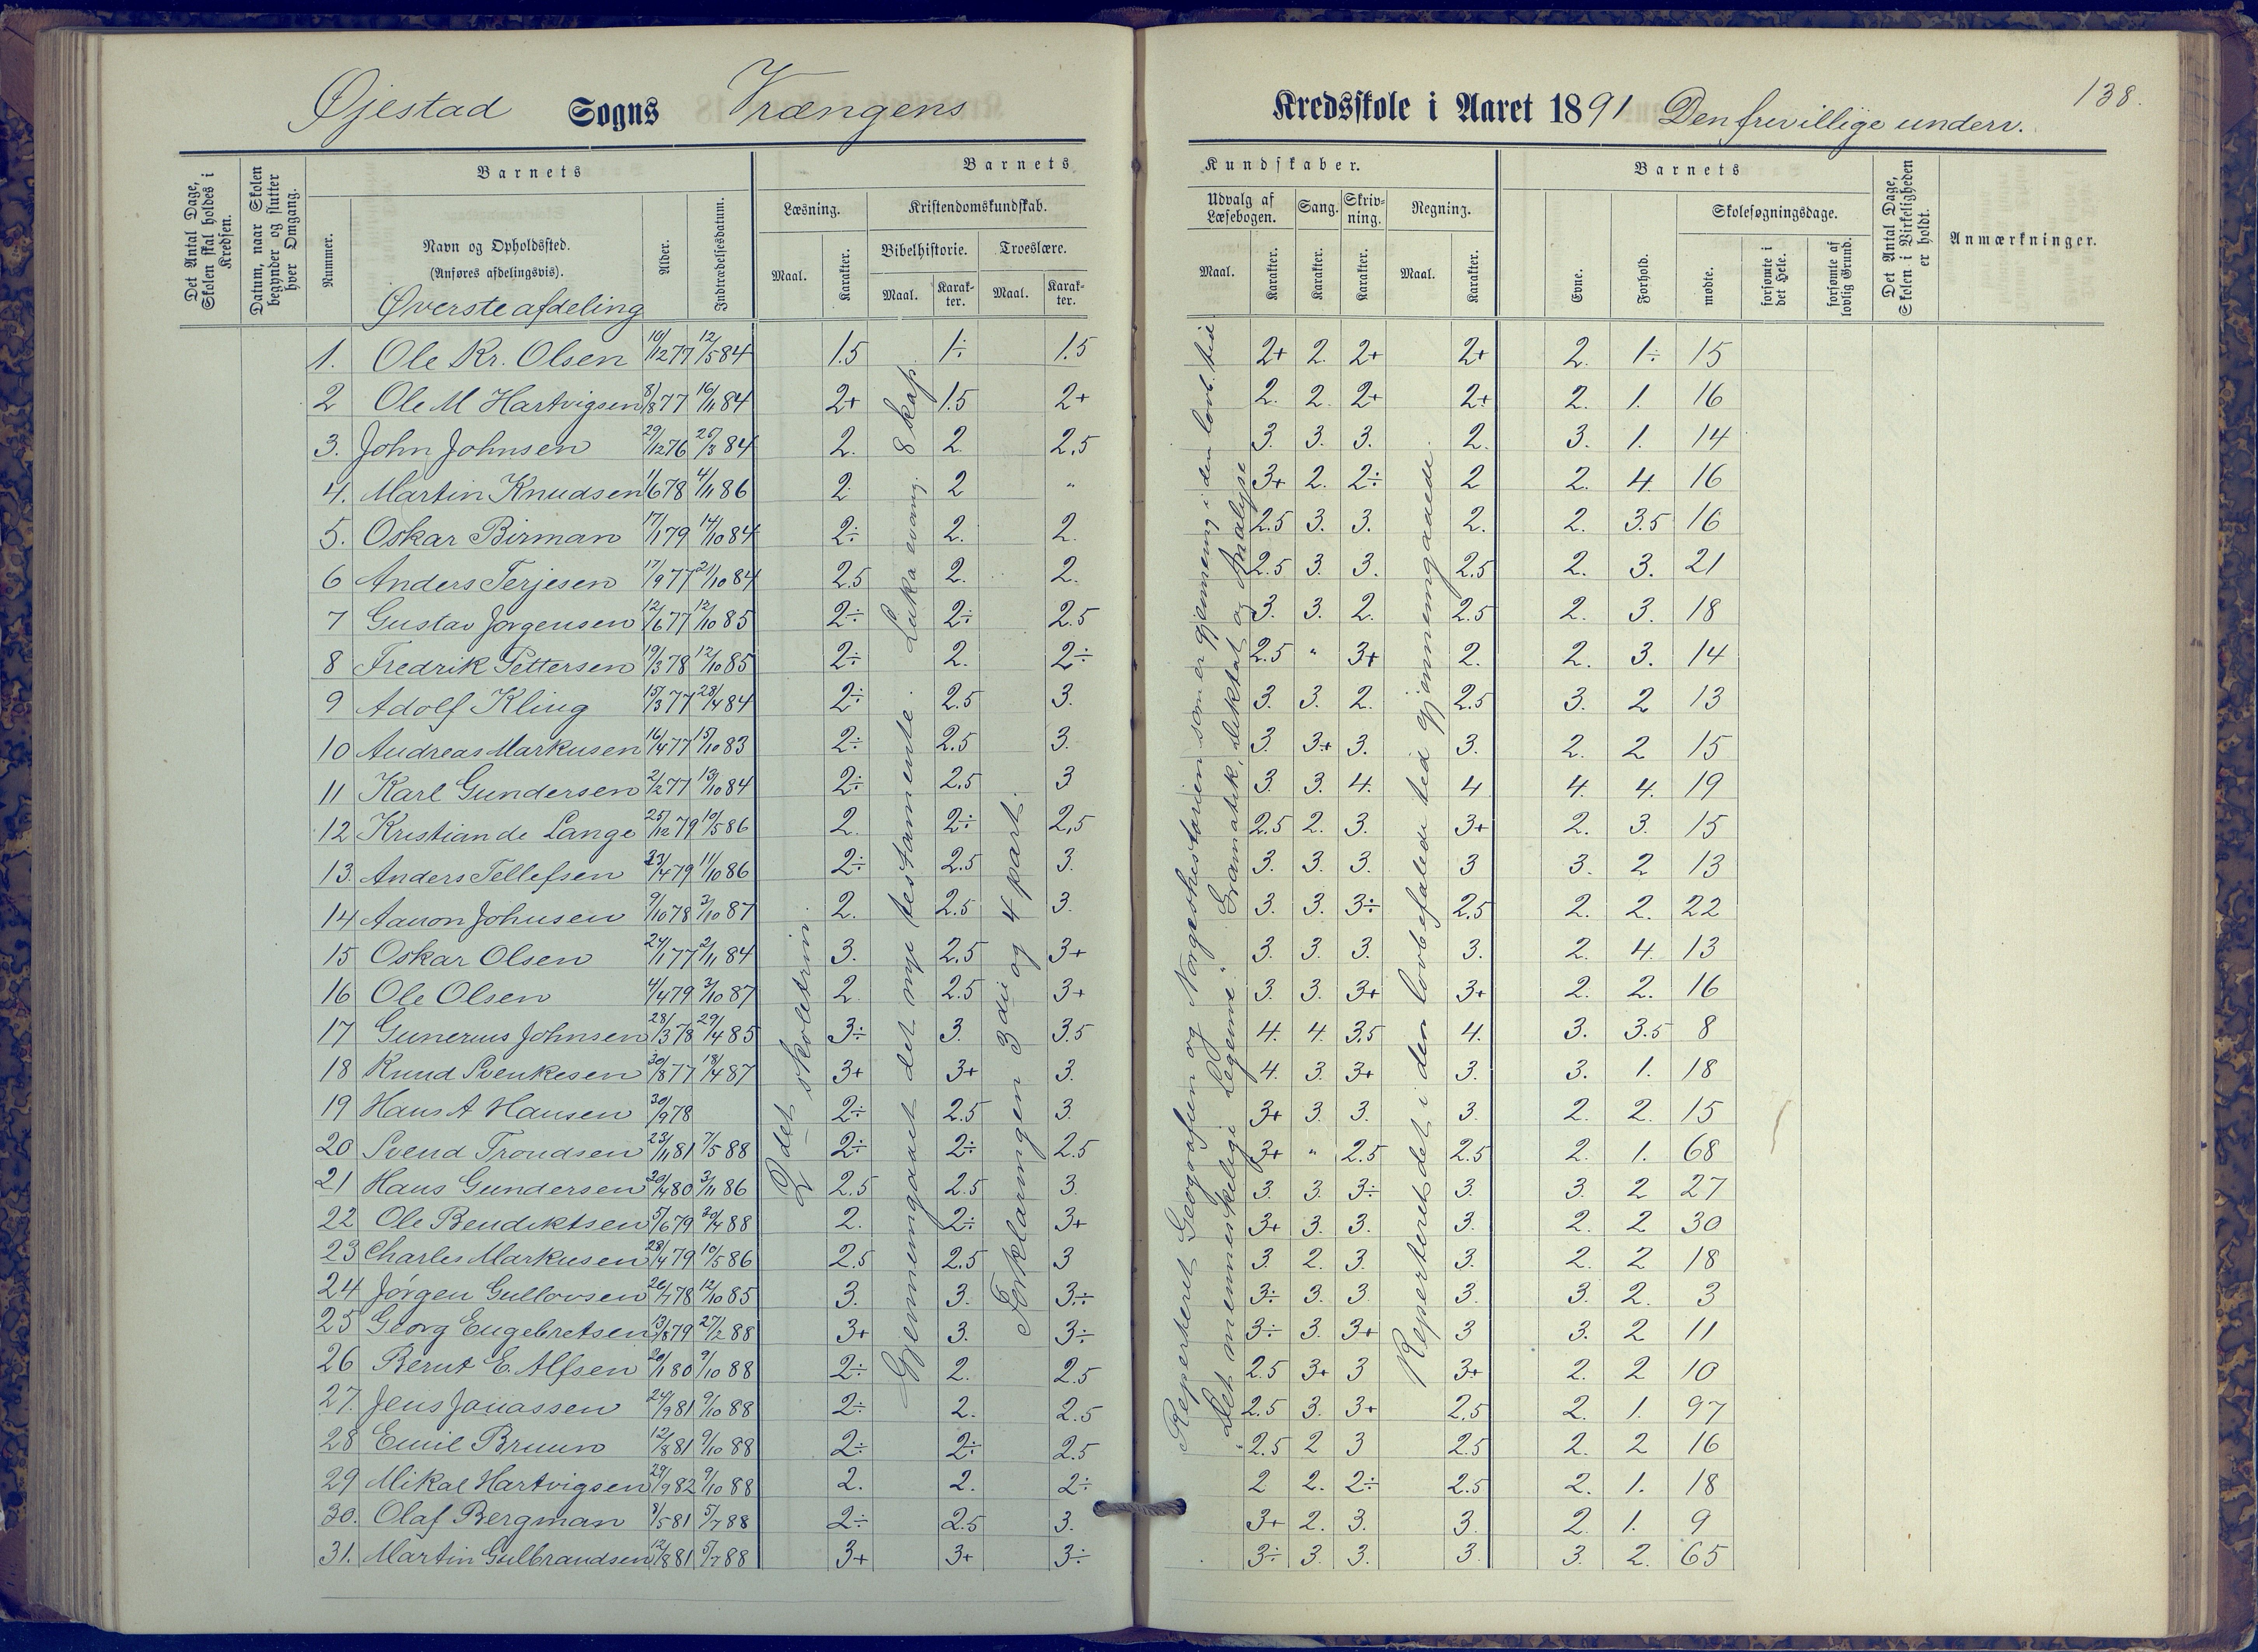 Øjestad Sogns Vrængens Kredsskole i Aaret 1891 Den frivillige underv. 138.
Det Antal Dage, Skolen skal holdes i Kredsen.
Datum, naar Skolen begynder og slutter hver Omgang.
Barnets
Nummer.
Navn og Opholdssted.
(Anføres afdelingsvis).
Øverste afdeling
Alder.
Indtrædelsesdatum.
Barnets Kundskaber.
Læsning. Maal. Karakter.
Kristendomskundskab.
Bibelhistorie. Maal. Karakter.
Troeslære. Maal. Karakter.
Udvalg af Læsebogen. Maal. Karakter.
Sang. Karakter.
Skrivning. Karakter.
Regning. Maal. Karakter.
Barnets
Evne. Forhold.
Skolesøgningsdage.
mødte. forsømte i det Hele. forsømte af lovlig Grund.
Det Antal Dage, Skolen i Virkeligheden er holdt.
Anmærkninger.
1. Ole Kr. Olsen 10/12 77 12/5 84 1.5 1÷ 1.5 2+ 2. 2+ 2+ 2. 1÷ 15
2 Ole M Hartvigsen 8/8 77 16/11 84 2+ 1.5 2+ 2. 2. 2+ 2+ 2. 1. 16
3. John Johnsen 29/12 76 26/3 84 2. 2. 2.5 3. 3. 3. 2. 3. 1. 14
4. Martin Knudsen 1/6 78 4/11 86 2. 2 " 3+ 2. 2÷ 2 2. 4. 16
5. Oskar Birman 17/1 79 14/10 84 2÷ 2. 2. 2.5 3. 3. 2. 2. 3.5 16
6 Anders Terjesen 17/9 77 21/10 84 2.5 2. 2. 2.5 3. 3. 2.5 2. 3. 21
7 Gustav Jørgensen 12/6 77 12/10 85 2÷ 2÷ 2.5 3. 3. 2. 2.5 2. 3. 18
8 Fredrik Pettersen 19/3 78 12/10 85 2÷ 2. 2÷ 2.5 " 3+ 2. 2. 3. 14
9 Adolf Kling 15/3 77 28/4 84 2÷ 2.5 3. 3. 3. 2. 2.5 3. 2 13
10 Andreas Markusen 16/4 77 15/10 83 2÷ 2.5 3. 3. 3+ 3. 3. 2. 2 15
11 Karl Gundersen 2/2 77 13/10 84 2÷ 2.5 3 3. 3. 4. 4 4. 4. 19
12 Kristian de Lange 25/12 79 10/5 86 2. 2÷ 2,5 2.5 2. 3. 3+ 2. 3. 15
13. Anders Tellefsen 23/4 79 11/10 86 2÷ 2.5 3. 3. 3. 3. 3 3. 2 13
14 Aanon Johnsen 9/10 78 3/10 87 2. 2.5 3. 3. 3. 3÷ 2.5 2. 2. 22
15 Oskar Olsen 24/1 77 2/11 84 3. 2.5 3+ 3. 3. 3. 3. 2. 4. 13
16 Ole Olsen 4/4 79 3/10 87 2. 2.5 3+ 3. 3. 3+ 3+ 2. 2. 16
17 Gunerius Johnsen 28/3 78 29/4 85 3÷ 3. 3.5 4. 4. 3.5 4. 3. 3.5 8
18 Knud Svenkesen 30/8 77 18/4 87 3+ 3+ 3. 4. 3. 3+ 3. 3. 1. 18
19 Hans A Hansen 30/9 78 2÷ 2.5 3. 3+ 3. 3. 3. 2. 2. 15
20 Svend Trondsen 23/11 81 7/5 88 2÷ 2÷ 2.5 3+ " 2.5 2.5 2. 1. 68
21 Hans Gundersen 30/4 80 3/11 86 2.5 2.5 3. 3. 3. 3÷ 3. 3. 2 27
22 Ole Bendiktsen 5/6 79 30/4 88 2. 2÷ 3+ 3+ 3. 3. 3. 2. 2 30
23 Charles Markusen 28/4 79 10/5 86 2.5 2.5 3 3. 2. 3. 3. 2. 2 18
24 Jørgen Gullovsen 26/7 78 12/10 85 3. 3. 3÷ 3÷ 3. 3. 3. 3. 2. 3
25 Georg Engebretsen 13/8 79 27/2 88 3+ 3. 3÷ 3÷ 3. 3+ 3 3. 2 11
26 Bernt E. Alfsen 20/1 80 9/10 88 2÷ 2. 2.5 2.5 3+ 3 3+ 2. 2 10
27. Jens Janassen 24/9 81 9/10 88 2÷ 2. 2.5 2.5 3. 3+ 2.5 2. 1. 97
28 Emil Bruun 12/8 81 9/10 88 2÷ 2÷ 2.5 2.5 2 3 2.5 2. 2 16
29 Mikal Hartvigsen 29/9 82 9/10 88 2. 2. 2÷ 2 2. 2÷ 2.5 2. 1. 18
30. Olaf Bergman 8/5 81 5/7 88 2÷ 2.5 3. 3+ 2. 3. 3. 2. 1. 9
31. Martin Gulbrandsen 12/8 81 5/7 88 3+ 3+ 3÷ 3÷ 3. 3. 3. 3. 2. 65
2det skoletrin
Gjennemgaaet det nye testamente. Luka evang. 8 kap.
Forklaringen 3die og 4 part.
Reperteret Geografien og Norgeshistorien som er gjennemg i den lovb. tid.
"Det menneskelige Legeme". Gramatik, diktat og Analyse
Reperteret det i den lovbefalede tid gjennemgaaede